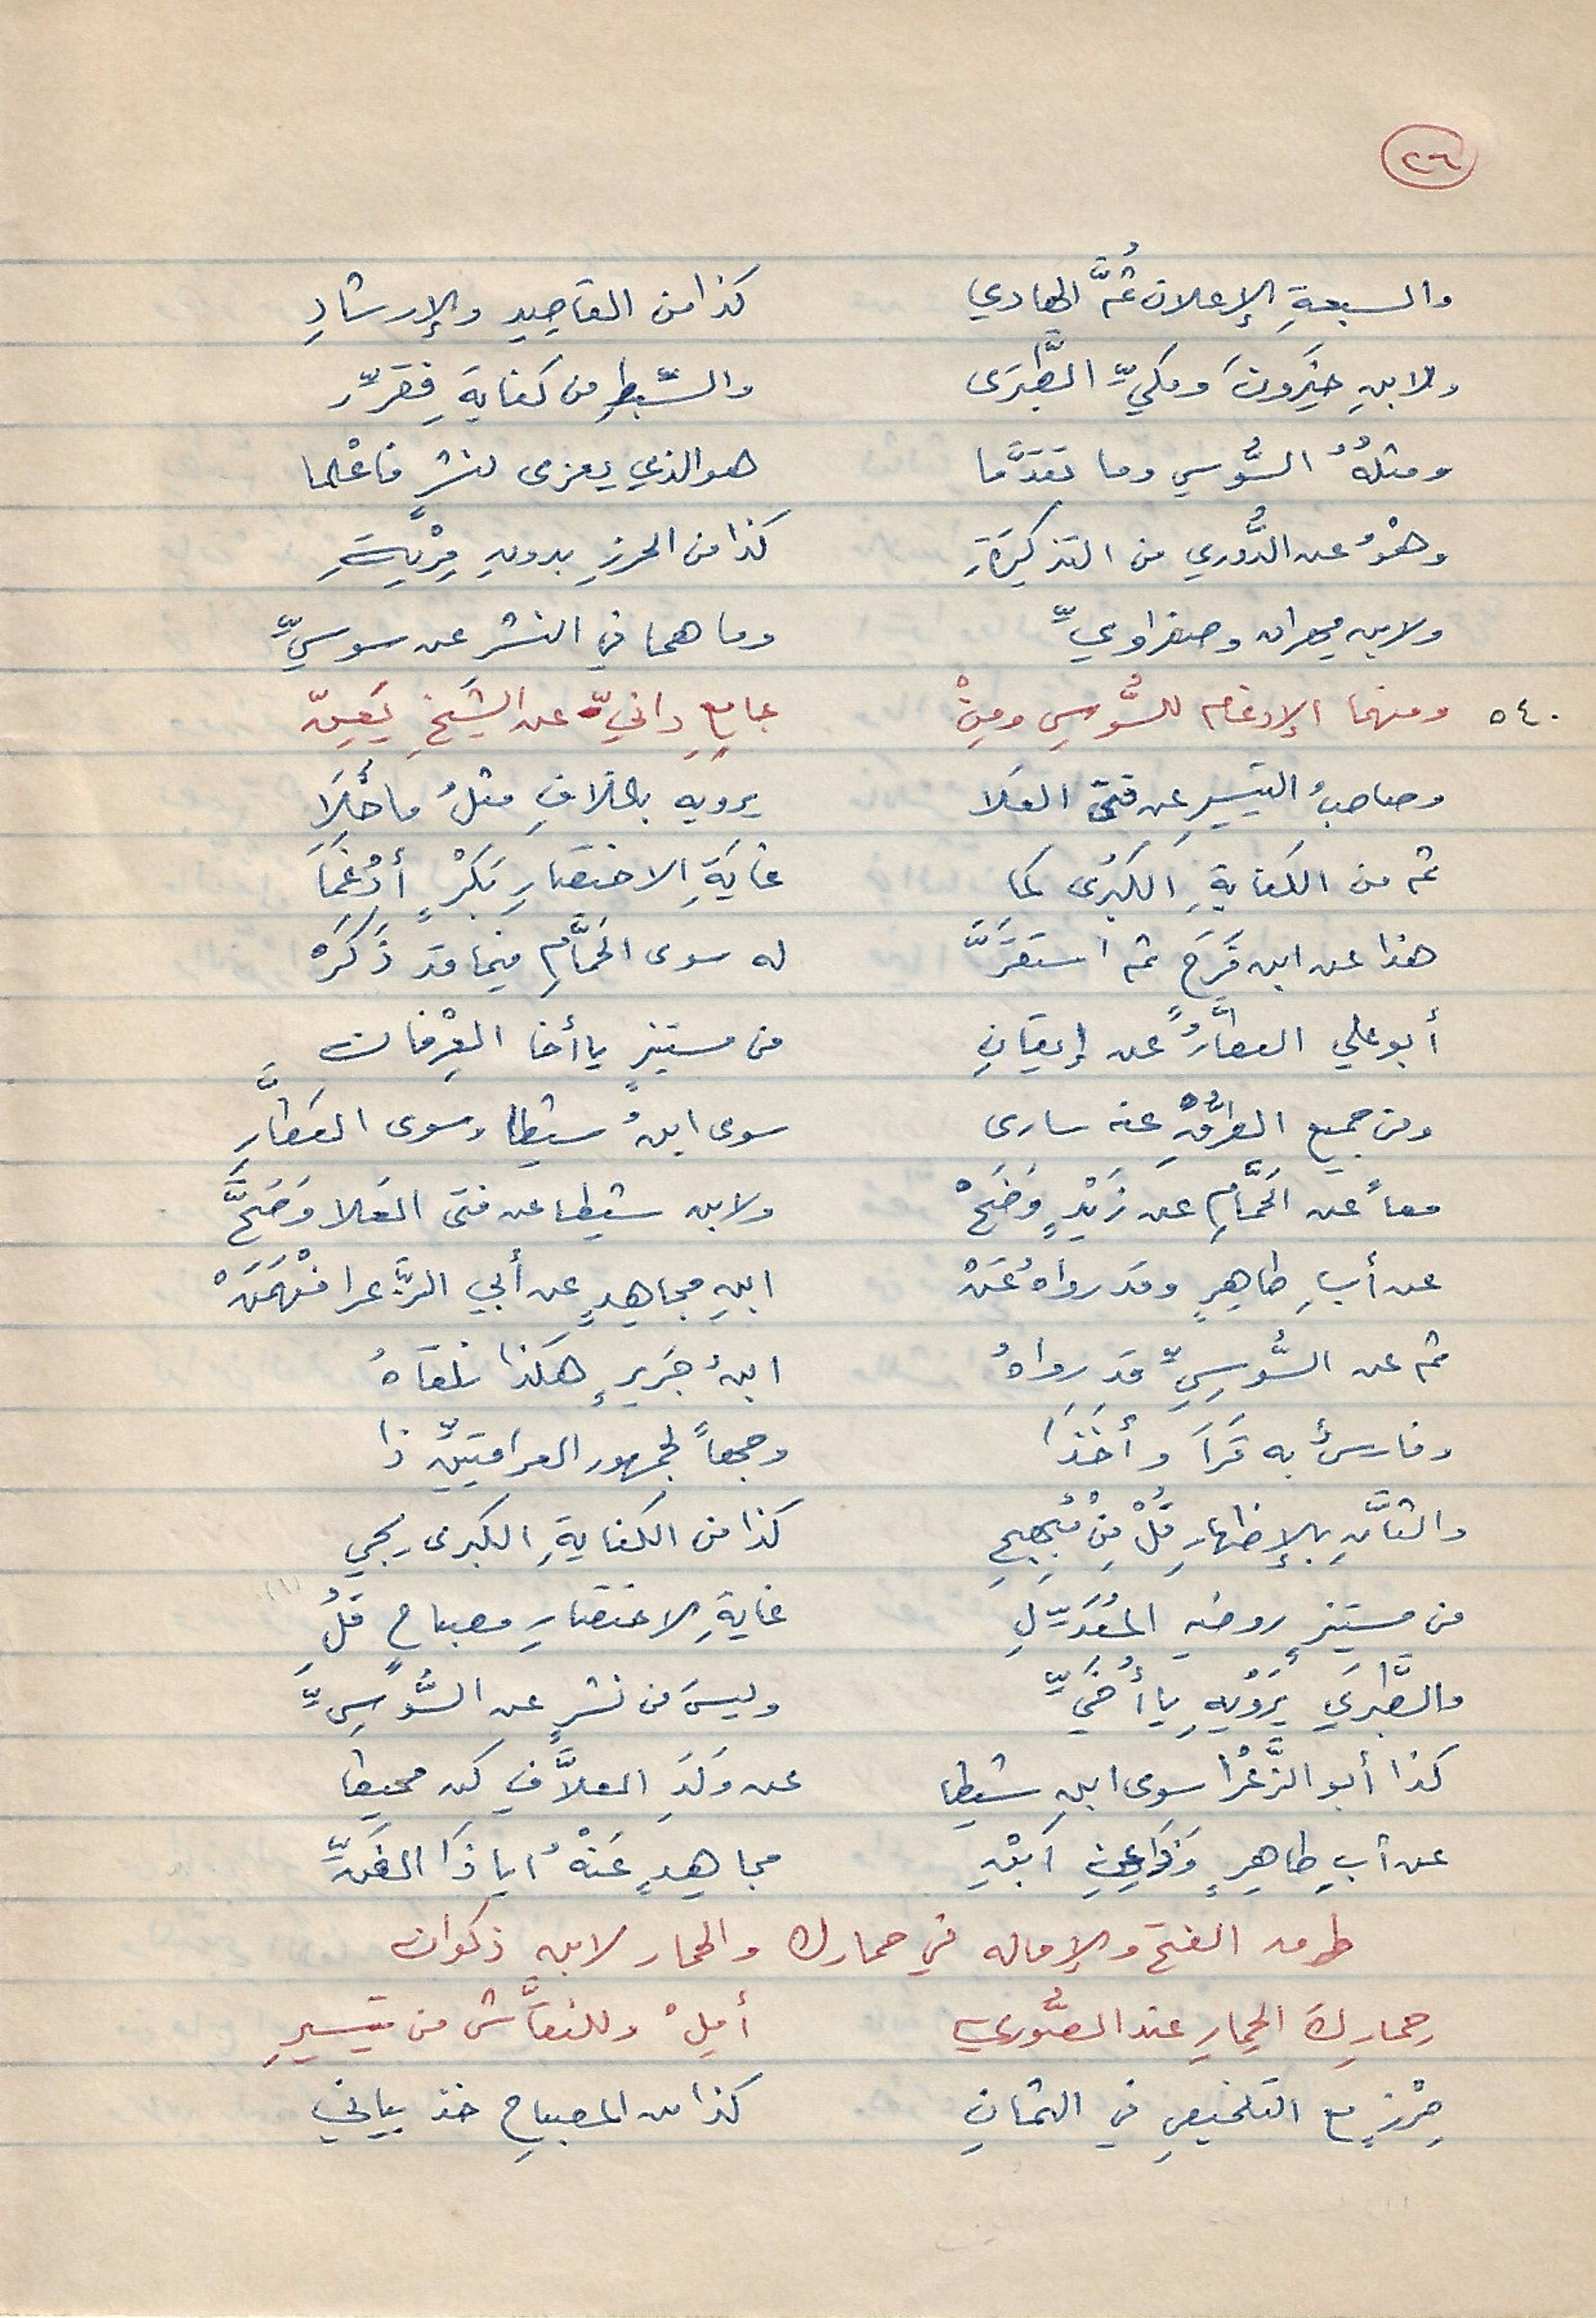 ٢٦
والسبعةِ الإعلان ثُمَّ الهادي كذا من القاصِدِ والإرشادِ
ولابنِ خَيرونَ ومكيِّ الطَّبَرَى والسِّبطِ من كفايةَ فقرِّر
ومثلهُ السُّوسي وما تقدَّما هو الذي يعزى لنشرٍ فاعْلما
وهْوُ عن الدُّوري من التذكِرَةِ كذا من الحرزِ بدونِ مِرْيَةِ
ولابن مهران وصفراويِّ وما هما في النشر عن سوسيِّ
٥٤٠ ومنهما الإدغام للسُّوسِي ومِنْ جامعِ دانيّ عن الشَيخِ يَعِنّ
وصاحبُ التيسيرِ عن فتى العَلا يرويه بالخلافِ مثلُ ما خَلَا
ثم من الكفايةِ الكبرَى كما غايَةِ الاختصارِ بَكْرٍ أدْغَمَا
هذا عن ابن فَرَحٍ ثم استقرَّ له سوى الحَمَّامِ فيما قد ذَكَرَهْ
أبو علي العطَّارُ عن إيقانِ من مستنيرٍ يا أخا العِرْفان
ومن جميع الطُّرْقِ عنه سارى سوى ابنُ شيطا وسوى العَطَّارِ
معاً عن الحَمَّامِ عن زَيْدٍ وَضَحْ ولابن شيطا عن فتى العَلا وَضَحَّ
عن أبِ طاهِرٍ وقد رواهُ عَنْ ابنِ مجاهِدٍ عن أبي الزَّعرا فَفْهَمَنْ
ثم عن السُّوسِيِّ قد رواهُ ابنُ جَرِيرٍ هكذا نلقاهُ
وفارسٌ به قَرَا وأخَذَا وجمعاً لجمهور العراقيّين ذا
والثَّانِ بالإظهارِ قُلْ مِنْ مُبْهِجِ كذا من الكفايةِ الكبرى يجي
من مستنيرٍ روضةِ المُعَدِّلِ غايةِ الاختصارِ مصباحٍ قُلِ (١)
والطَّبَرَي يَرْوْيهِ يا أُخَيِّ وليسَ من نشرٍ عن السُّوسِيِّ
كذا أبو الزَّعْرَا سوى ابنِ شيطا عن وَلَدِ العلاَّفِ كن محيطا
عن أبِ طاهِرٍ وذا عن ابْنِ مجاهِدٍ عَنْهُ ايا ذَا الفَنِّ
طرق الفتح والإماله في حمارك والحمار لابن ذكوان
حمارِكَ الحِمارِ عند الصُّوري أمِلْ وللنقَّاش من تيسيرِ
حِرْزٍ مع التلخيصِ في الثمانِ كذا من المصباحِ خذ بياني